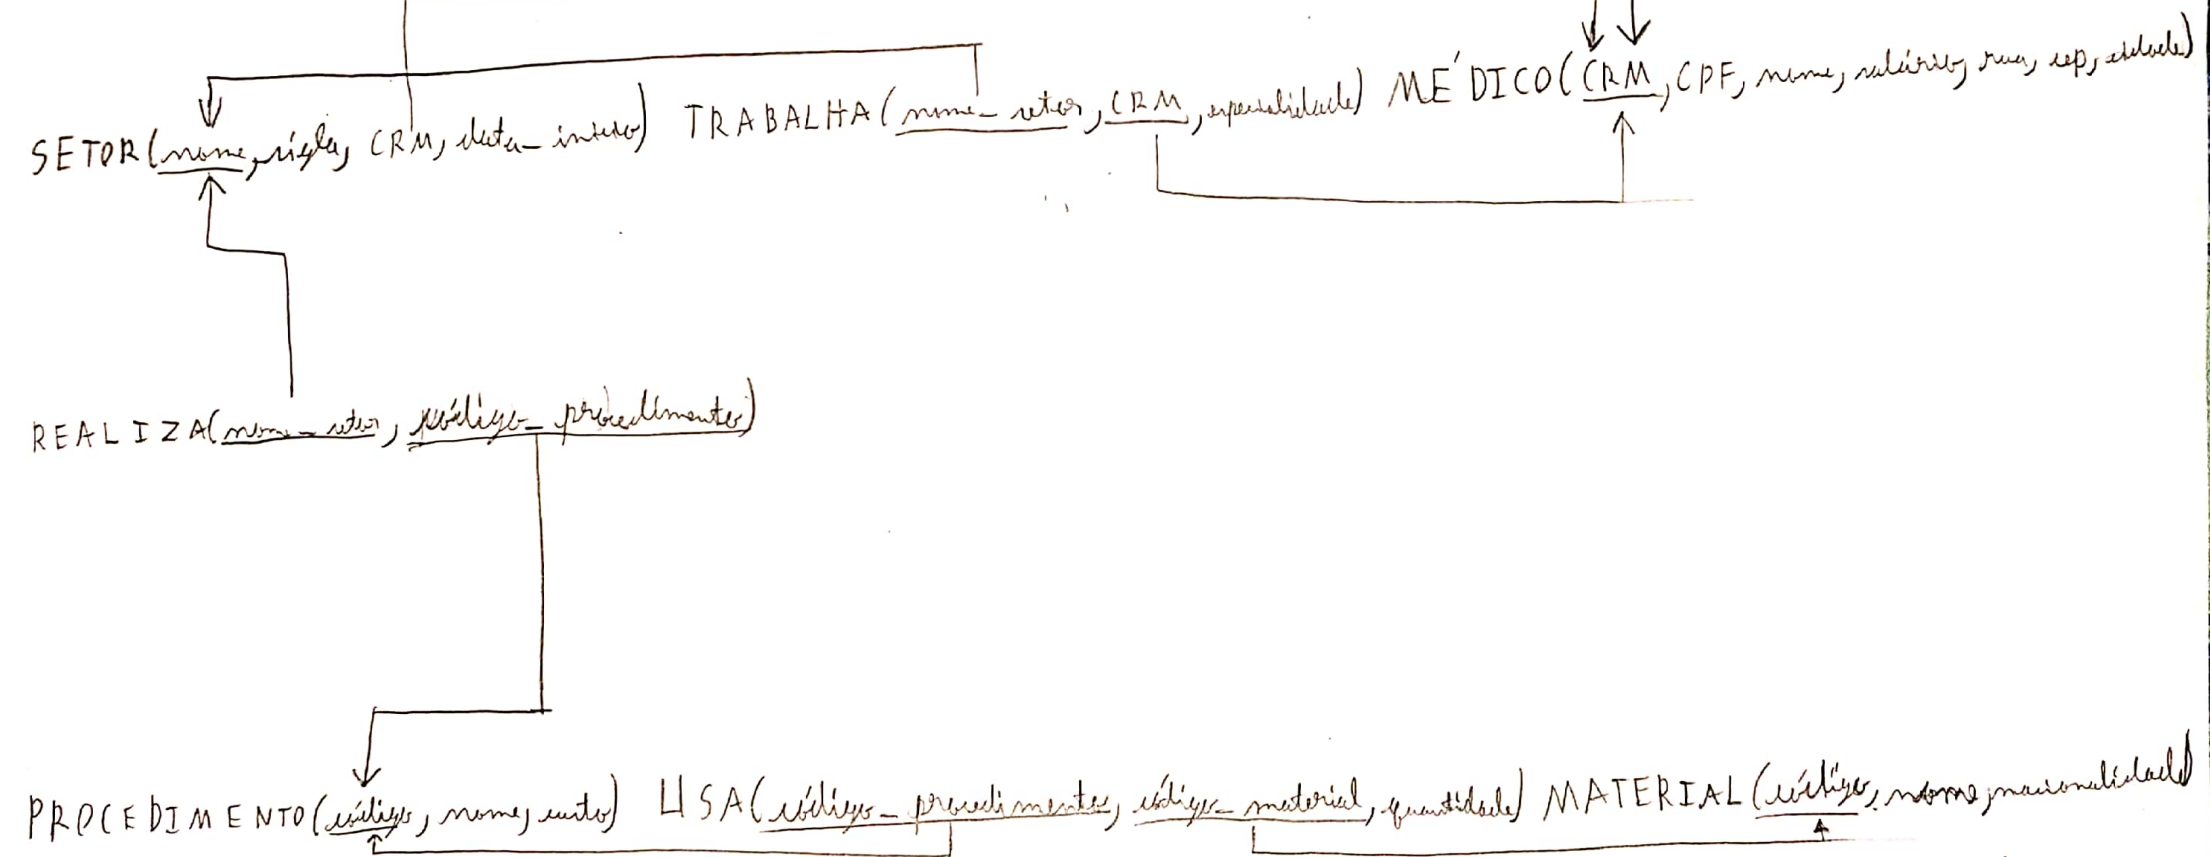 SETOR(nome, sigla, CRM, data_início) TRABALHA(nome_setor, CRM, especialidade) MÉDICO(CRM, CPF, nome, salário, rua, cep, cidade)
REALIZA(nome_setor, código_procedimento)
PROCEDIMENTO(código, nome, custo) USA(código_procedimento, código_material, quantidade) MATERIAL(código, nome, nacionalidade)